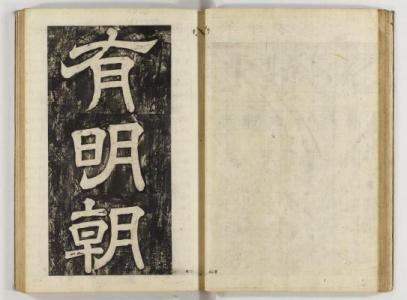 有明朝